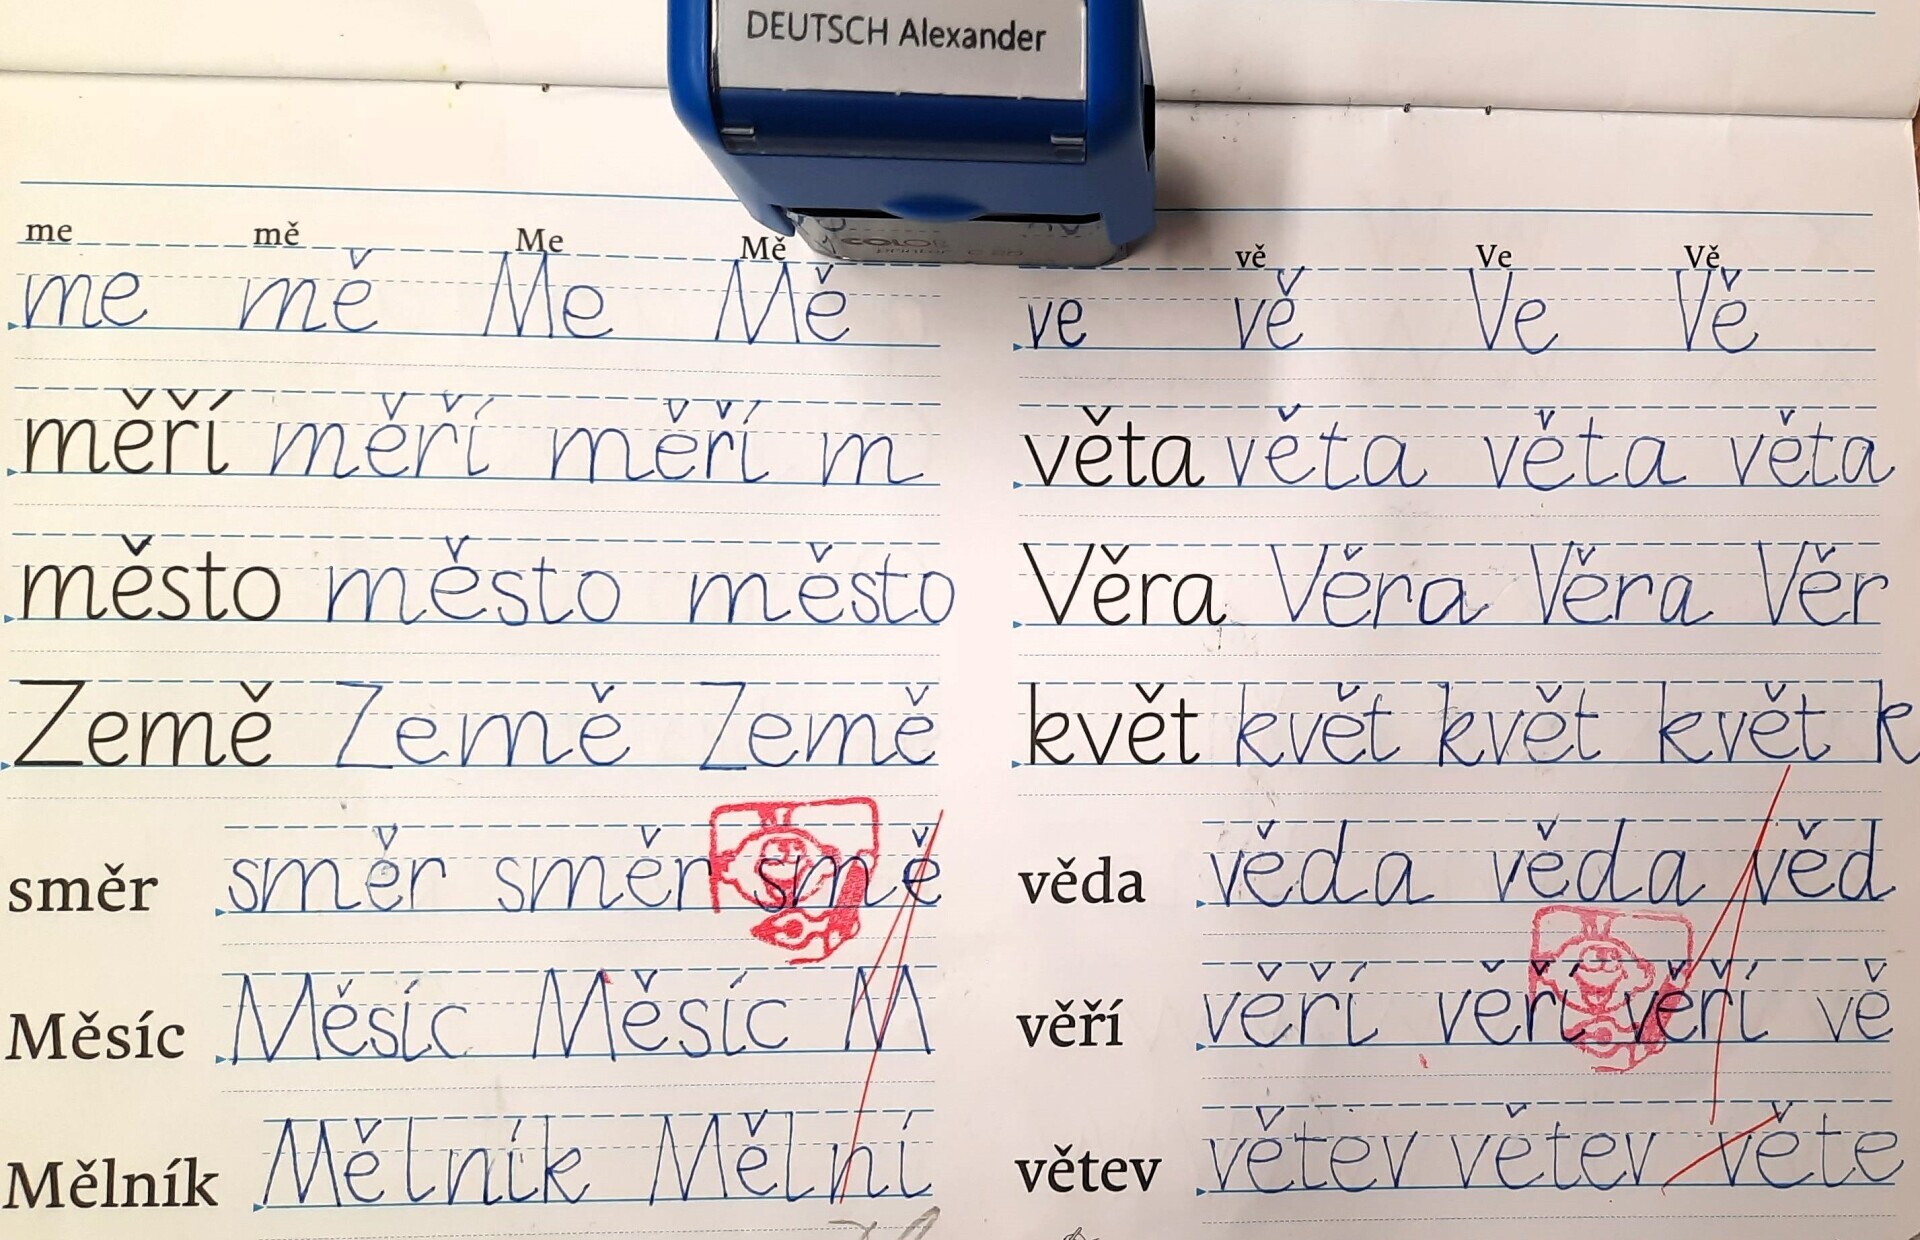 DEUTSCH Alexander
COLOP
printer C 20
me mě Me Mě
me mě Me Mě
měří měří měří m
město město město
Země Země Země
směr směr směr smě
Měsíc Měsíc Měsíc M
Mělník Mělník Mělní
vě Ve Vě
ve vě Ve Vě
věta věta věta věta
Věra Věra Věra Věr
květ květ květ květ k
věda věda věda věd
věří věří věří věří vě
větev větev větev věte